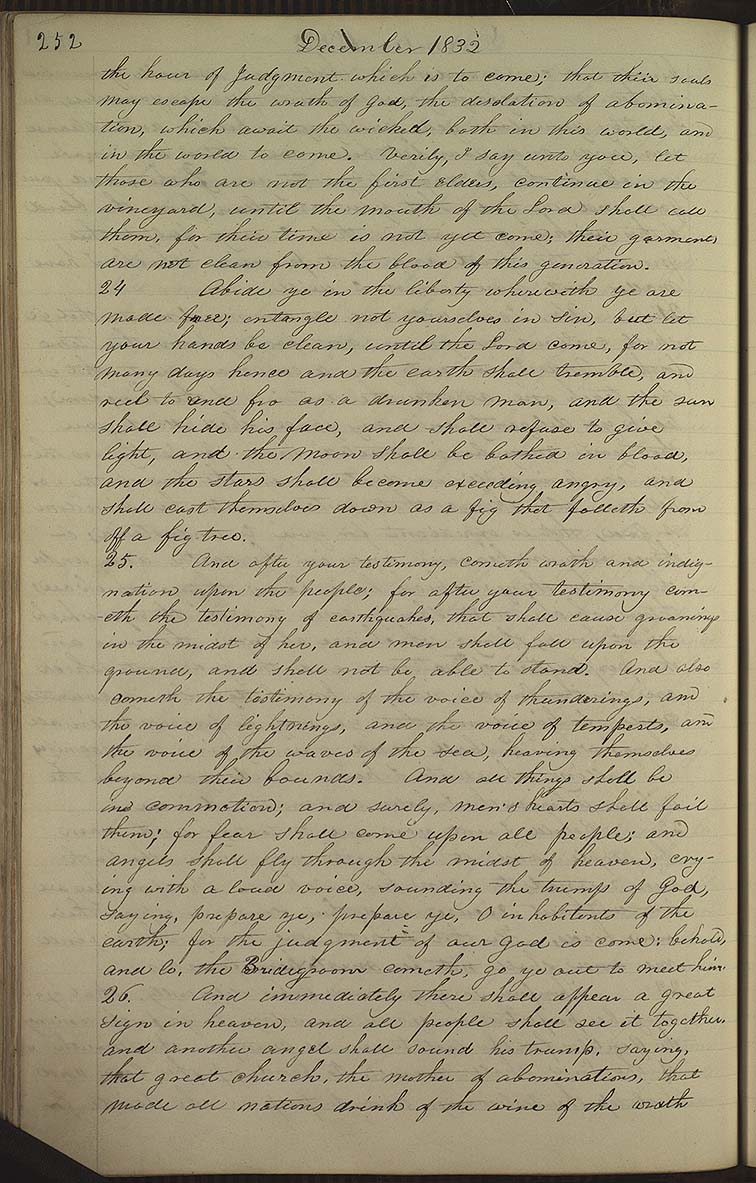 252 December 1832
the hour of Judgment which is to come; that their souls
may escape the wrath of God, the desolation of abomina-
tion, which await the wicked, both in this world, and
in the world to come. Verily, I say unto you, let
those who are not the first elders, continue in the
vineyard, until the mouth of the Lord shall call
them, for their time is not yet come; their garments
are not clean from the blood of this generation.
24 Abide ye in the liberty wherewith ye are
made free; entangle not yourselves in sin, but let
your hands be clean, until the Lord come, for not
many days hence and the earth shall tremble, and
reel to and fro as a drunken man, and the sun
shall hide his face, and shall refuse to give
light, and the moon shall be bathed in blood,
and the stars shall become exceeding angry, and
shall cast themselves down as a fig that falleth from
off a fig tree.
25. And after your testimony, cometh wrath and indig-
nation upon the people; for after your testimony com-
-eth the testimony of earthquakes, that shall cause groanings
in the midst of her, and men shall fall upon the
ground, and shall not be able to stand. And also
cometh the testimony of the voice of thunderings, and
the voice of lightnings, and the voice of tempests, and
the voice of the waves of the sea, heaving themselves
beyond their bounds. And all things shall be
in commotion; and surely, men's hearts shall fail
them; for fear shall come upon all people; and
angels shall fly through the midst of heaven, cry-
ing with a loud voice, sounding the trump of God,
saying, prepare ye, prepare ye, O inhabitents of the
earth; for the judgment of our God is come: behold,
and lo, the Bridegroom cometh, go ye out to meet him.
26. And immediately there shall appear a great
sign in heaven, and all people shall see it together.
and another angel shall sound his trump, saying,
that great church, the mother of abominations, that
made all nations drink of the wine of the wrath